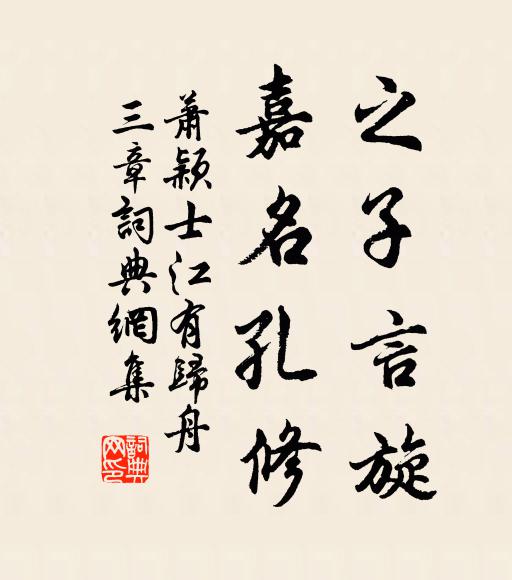 之子言旋
嘉名孔修
蕭穎士江有歸舟
三章詞典網集
詞典
网印